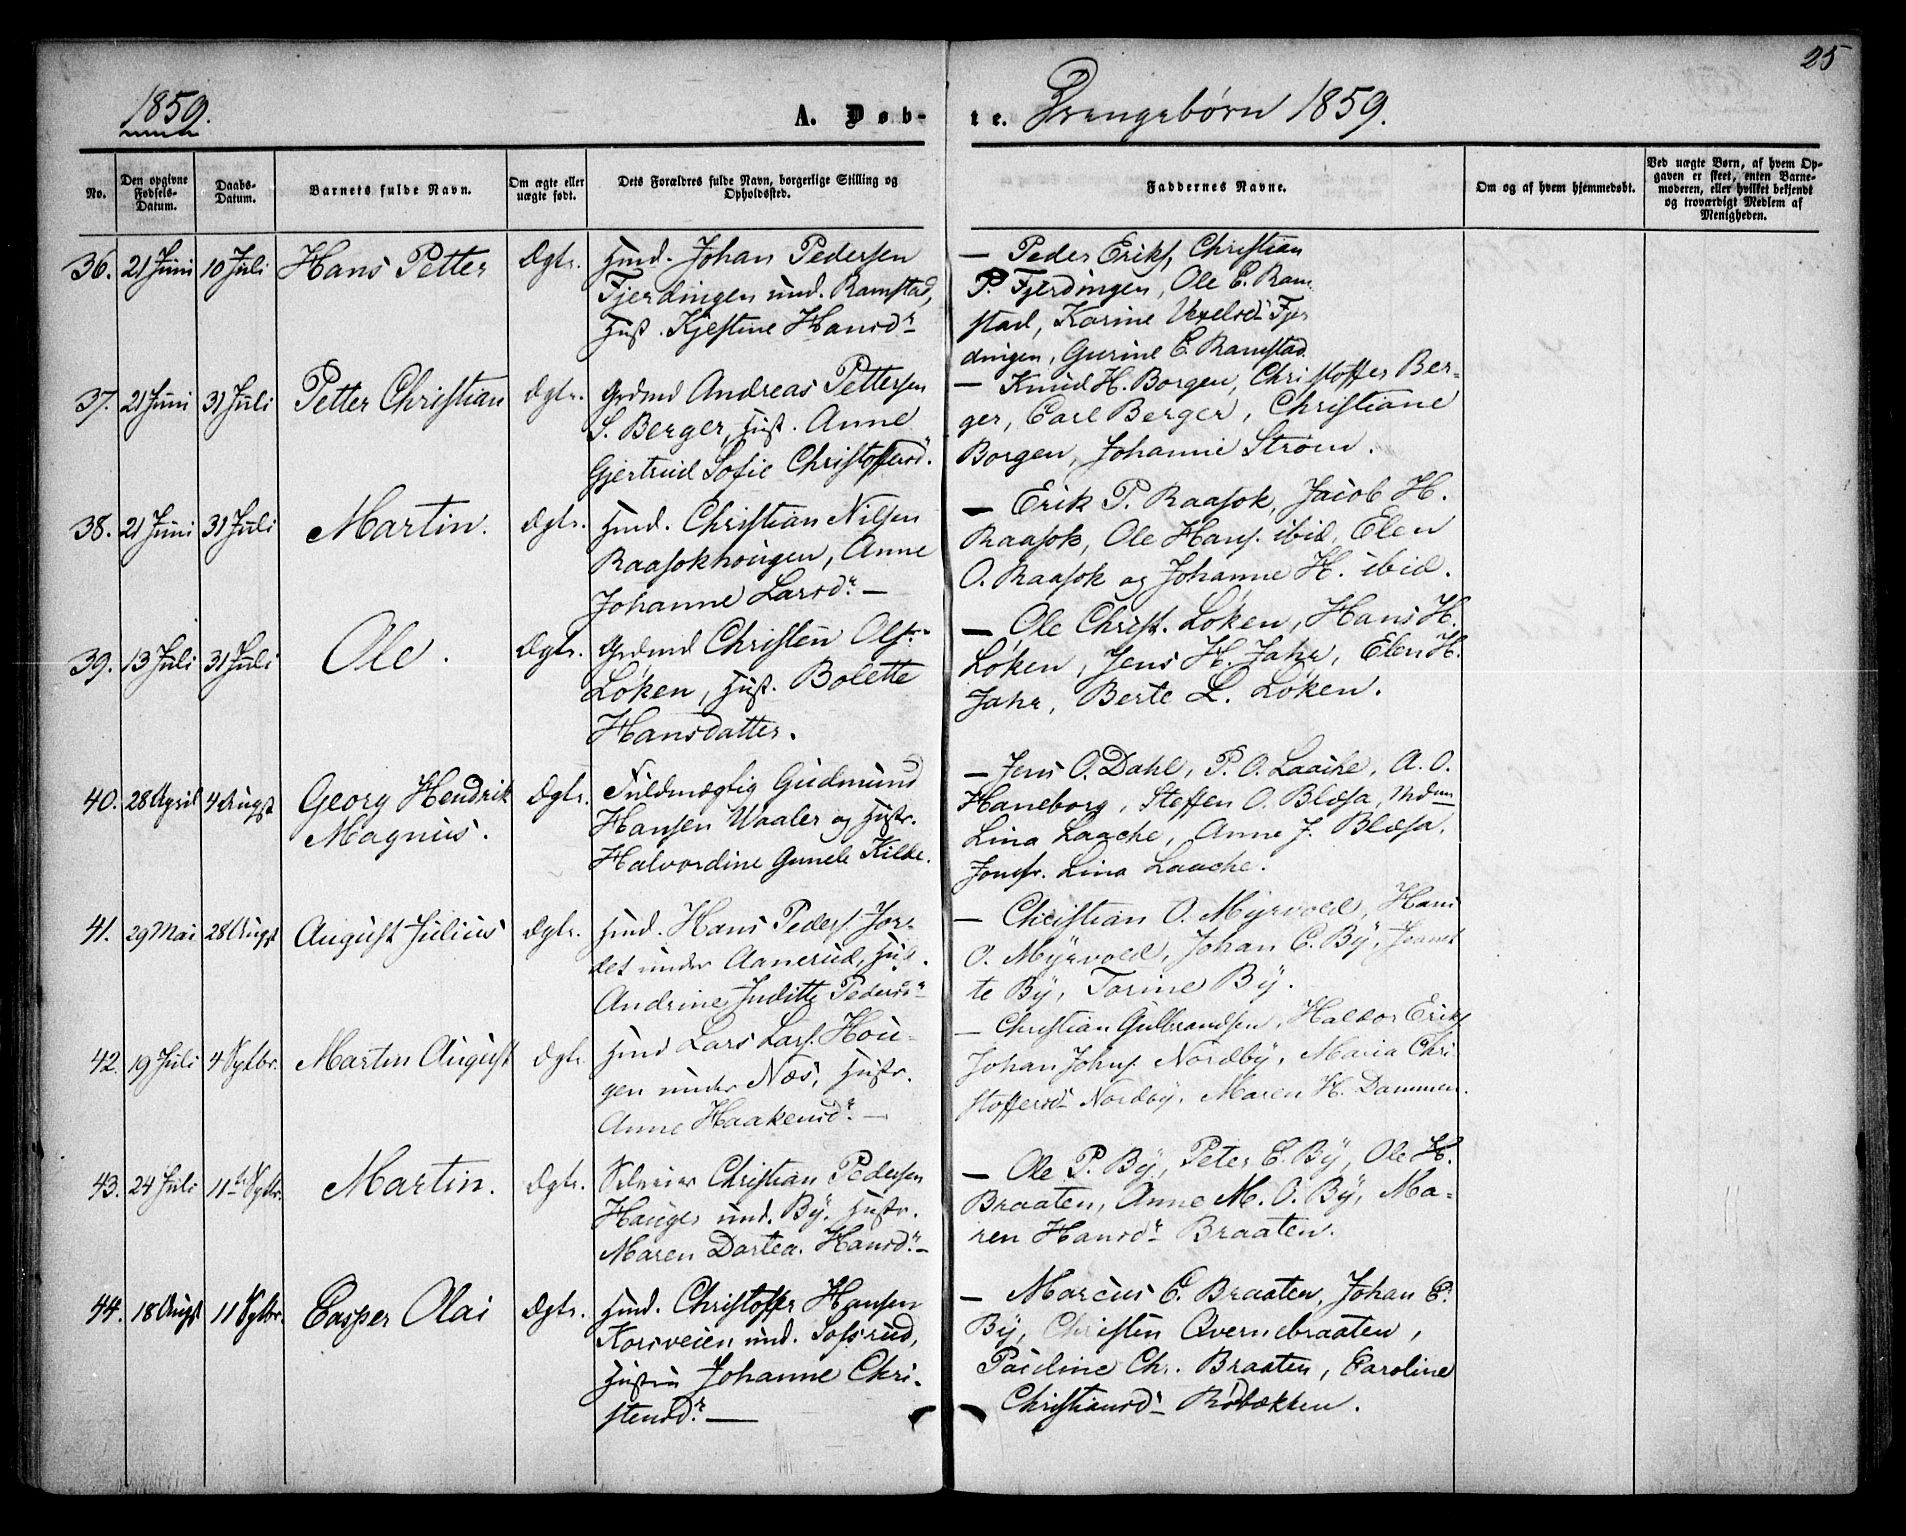 25
1859.
A. Døb-
te. Drengebørn 1859.
No.
Den opgivne Fødsels-Datum.
Daabs-Datum.
Barnets fulde Navn.
Om ægte eller uægte født.
Dets Forældres fulde Navn, borgerlige Stilling og Opholdssted.
Faddernes Navne.
Om og af hvem hjemmedøbt.
Ved uægte Børn, af hvem Opgaven er skeet, enten Barnemoderen, eller hvilket bekjendt og troværdigt Medlem af Menigheden.
36. 21 Juni 10 Juli Hans Petter Ægte.
Husm. Johan Pedersen
Fjerdingen und. Ramstad,
Hust. Kjestine Hansdr
— Peder Eriks, Christian
P. Fjerdingen, Ole E. Ram
stad, Karine Vexelsd Fjer
dingen, Gurine E. Ramstad
37. 21 Juni 31 Juli Petter Christian Ægte.
Grdmd Andreas Pettersen
S. Berger, Hust. Anne
Gjertrud Sofie Christoffersd.
— Knud H. Borgen, Christoffer Ber-
ger, Carl Berger, Christiane
Borgen, Johanne Strøm.
38. 21 Juni 31 Juli Martin. Ægte.
Husm. Christian Nilsen
Raasokhougen, Anne
Johanne Larsdr. —
— Erik P. Raasok, Jacob H.
Raasok, Ole Hans. ibid, Elen
O. Raasok og Johanne H. ibid.
39. 13 Juli 31 Juli Ole. Ægte.
Grdmd Christen Ols.
Løken, Hust. Bolette
Hansdatter.
— Ole Christ. Løken, Hans H.
Løken, Jens H. Jahr, Elen H.
Jahr, Berte L. Løken.
40. 28 April 4 August Georg Hendrik Ægte.
Magnus.
Fuldmægtig Gudmund
Hansen Waaler og Hustr.
Halvordine Gunele Kilde.
— Jens O. Dahl, P. O. Laache, A. O.
Haneborg, Steffen O. Blæsa, Mdm
Lina Laache, Anne J. Blæsa.
Jomfr. Lina Laache.
41. 29 Mai 28 Augst August Julius Ægte.
Husm. Hans Peders. Jor-
det under Aanerud, Hust.
Andrine Juditte Pedersdr
— Christian O. Myrvold, Hans
O. Myrvold, Johan C. By, Jeanet
te By, Torine By.
42. 19 Juli 4 Sptbr. Martin August Ægte.
Husm Lars Lars. Hou-
gen under Næs, Hustr.
Anne Haakensdr. —
— Christian Gulbrandsen, Haldor Eriks
Johan Johns. Nordby, Maria Chri
stoffersd Nordby, Maren H. Dammen.
43. 24 Juli 11te Sptbr. Martin. Ægte.
Christian Pedersen
Hauger und. By, Hustr.
Maren Dortea Hansdr. —
— Ole P. By, Peter E. By, Ole H.
Braaten, Anne M. O. By, Ma-
ren Hansdr Braaten.
44. 18 Augst 11 Sptbr. Casper Olai Ægte.
Husm. Christoffer Hansen
Korsveien und. Sofsrud,
Hustru Johanne Chri-
stensdr. —
— Marcus E. Braaten, Johan E.
By, Christen Qvernebraaten,
Pauline Chr. Braaten, Caroline
Christiansd Rødbækken.